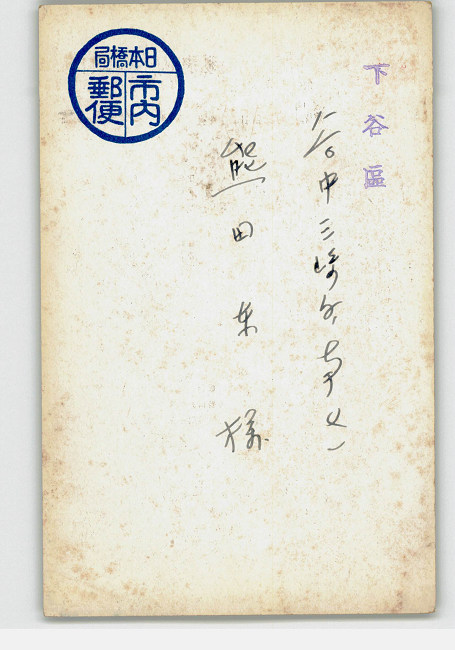 下谷區
谷中三崎町
熊田 様
日本橋局
市内
郵便